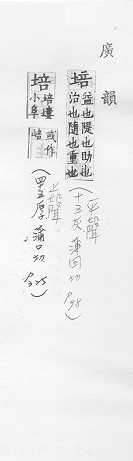 廣韻
培 益也隄也助也治也隨也重也 (十五灰 薄回切 P98)
平聲
培 培塿小阜 或作𡋨
(四十五厚 蒲口切 P325)
上聲